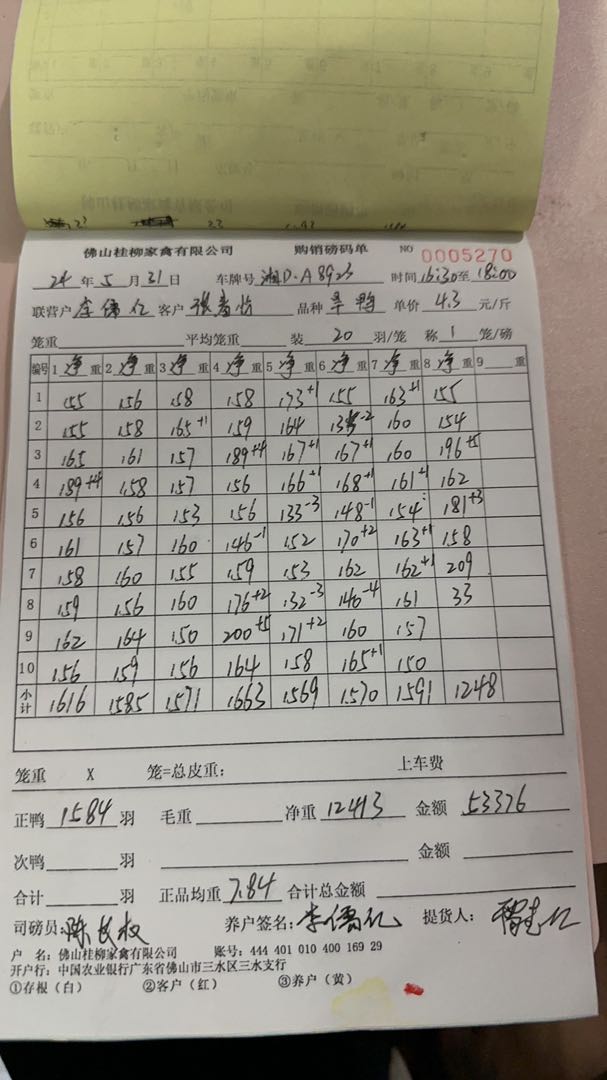 佛山桂柳家禽有限公司 购销磅码单 NO 0005270
24年5月31日 车牌号 湘D·A8923 时间16:30至18:00
联营户 李儒亿 客户 品种 旱鸭 单价 4.3 元/斤
笼重 平均笼重 装 20 羽/笼 称 1 笼/磅
编号 1净重 2净重 3净重 4净重 5净重 6净重 7净重 8净重 9 重
1 155 156 158 158 173+1 155 163+1 155
2 155 158 165+1 159 164 -2 160 154
3 165 161 157 189+4 167+1 167+1 160 196+5
4 189+4 158 157 156 166+1 168+1 161+1 162
5 156 156 153 156 133-3 148-1 154 181+3
6 161 157 160 146-1 152 170+2 163+1 158
7 158 160 155 159 153 162 162+1 209
8 159 156 160 176+2 132-3 140-4 161 33
9 162 164 150 200+5 171+2 160 157
10 156 159 156 164 158 165+1 150
小计 1616 1585 1571 1663 1569 1570 1591 1248
笼重 X 笼=总皮重: 上车费
正鸭 1584 羽 毛重 净重 12413 金额 53376
次鸭 羽 金额
合计 羽 正品均重 7.84 合计总金额
司磅员: 陈长权 养户签名: 李儒亿 提货人:
户 名: 佛山桂柳家禽有限公司 账号: 444 401 010 400 169 29
开户行: 中国农业银行广东省佛山市三水区三水支行
①存根(白) ②客户(红) ③养户(黄)